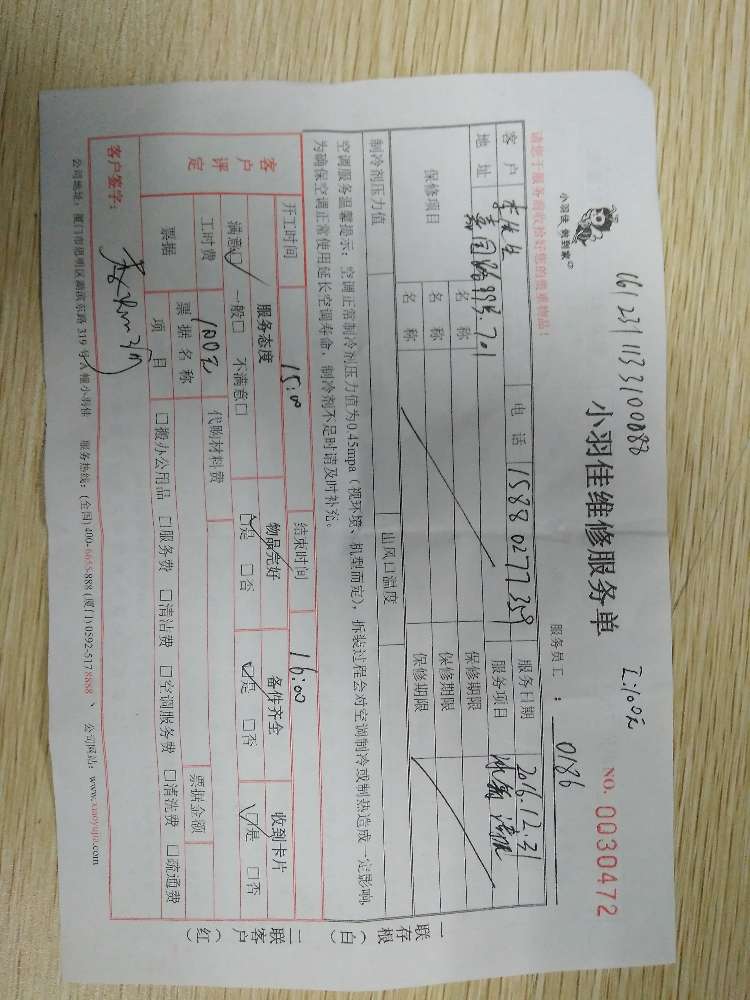 1612311133100088
工:100元
小羽佳 帮到家
小羽佳维修服务单
NO. 0030472
服务员工 : 0186
请您于服务前收拾好您的贵重物品！
客户 李先生 电话 15880277359 服务日期 2016.12.31
地址 99号701 服务项目 冰箱清洗
保修项目 名称 保修期限
名称 保修期限
名称 保修期限
制冷剂压力值 出风口温度
空调服务温馨提示：空调正常制冷剂压力值为0.45mpa（视环境、机型而定），拆装过程会对空调制冷或制热造成一定影响，
为确保空调正常使用延长空调寿命，制冷剂不足时请及时补充。
开工时间 15:00 结束时间 16:00
客户评定 服务态度 物品完好 备件齐全 收到卡片
满意☑ 一般□ 不满意□ ☑是 □否 ☑是 □否 ☑是 □否
工时费 100元 代购材料费
票据 票据名称 票据金额
项目 □搬办公用品 □服务费 □清洁费 □空调服务费 □清洗费 □疏通费
客户签字：
公司地址：厦门市思明区湖滨东路 319 号A幢小羽佳 服务热线：(全国) 400-6655-888 (厦门) 0592-5178888 、 公司网站：www.xiaoyujia.com
一联存根（白）
二联客户（红）